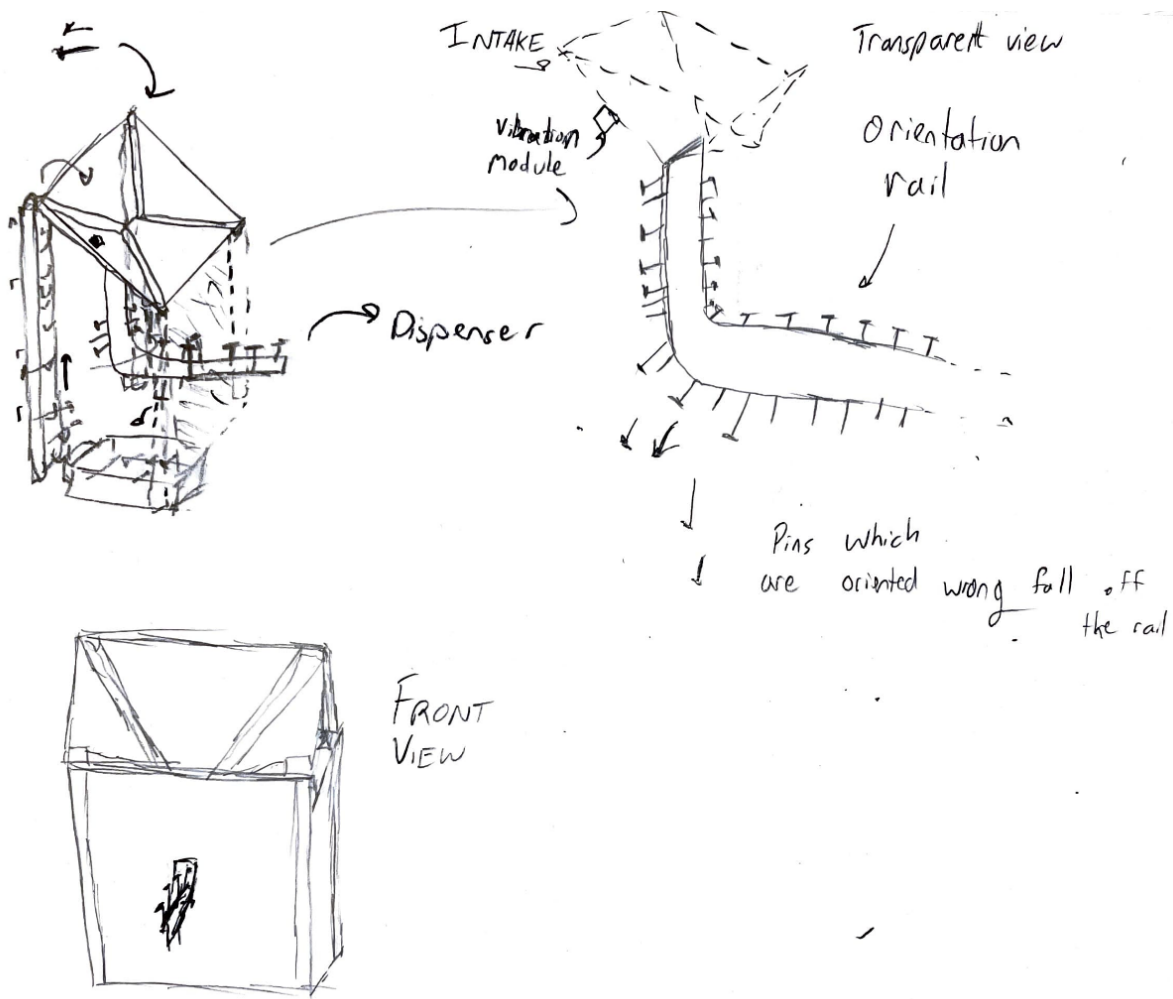 INTAKE
Transparent view
Vibration
Module
Orientation
rail
Dispenser
Pins which
are oriented wrong fall off
the rail
FRONT
VIEW